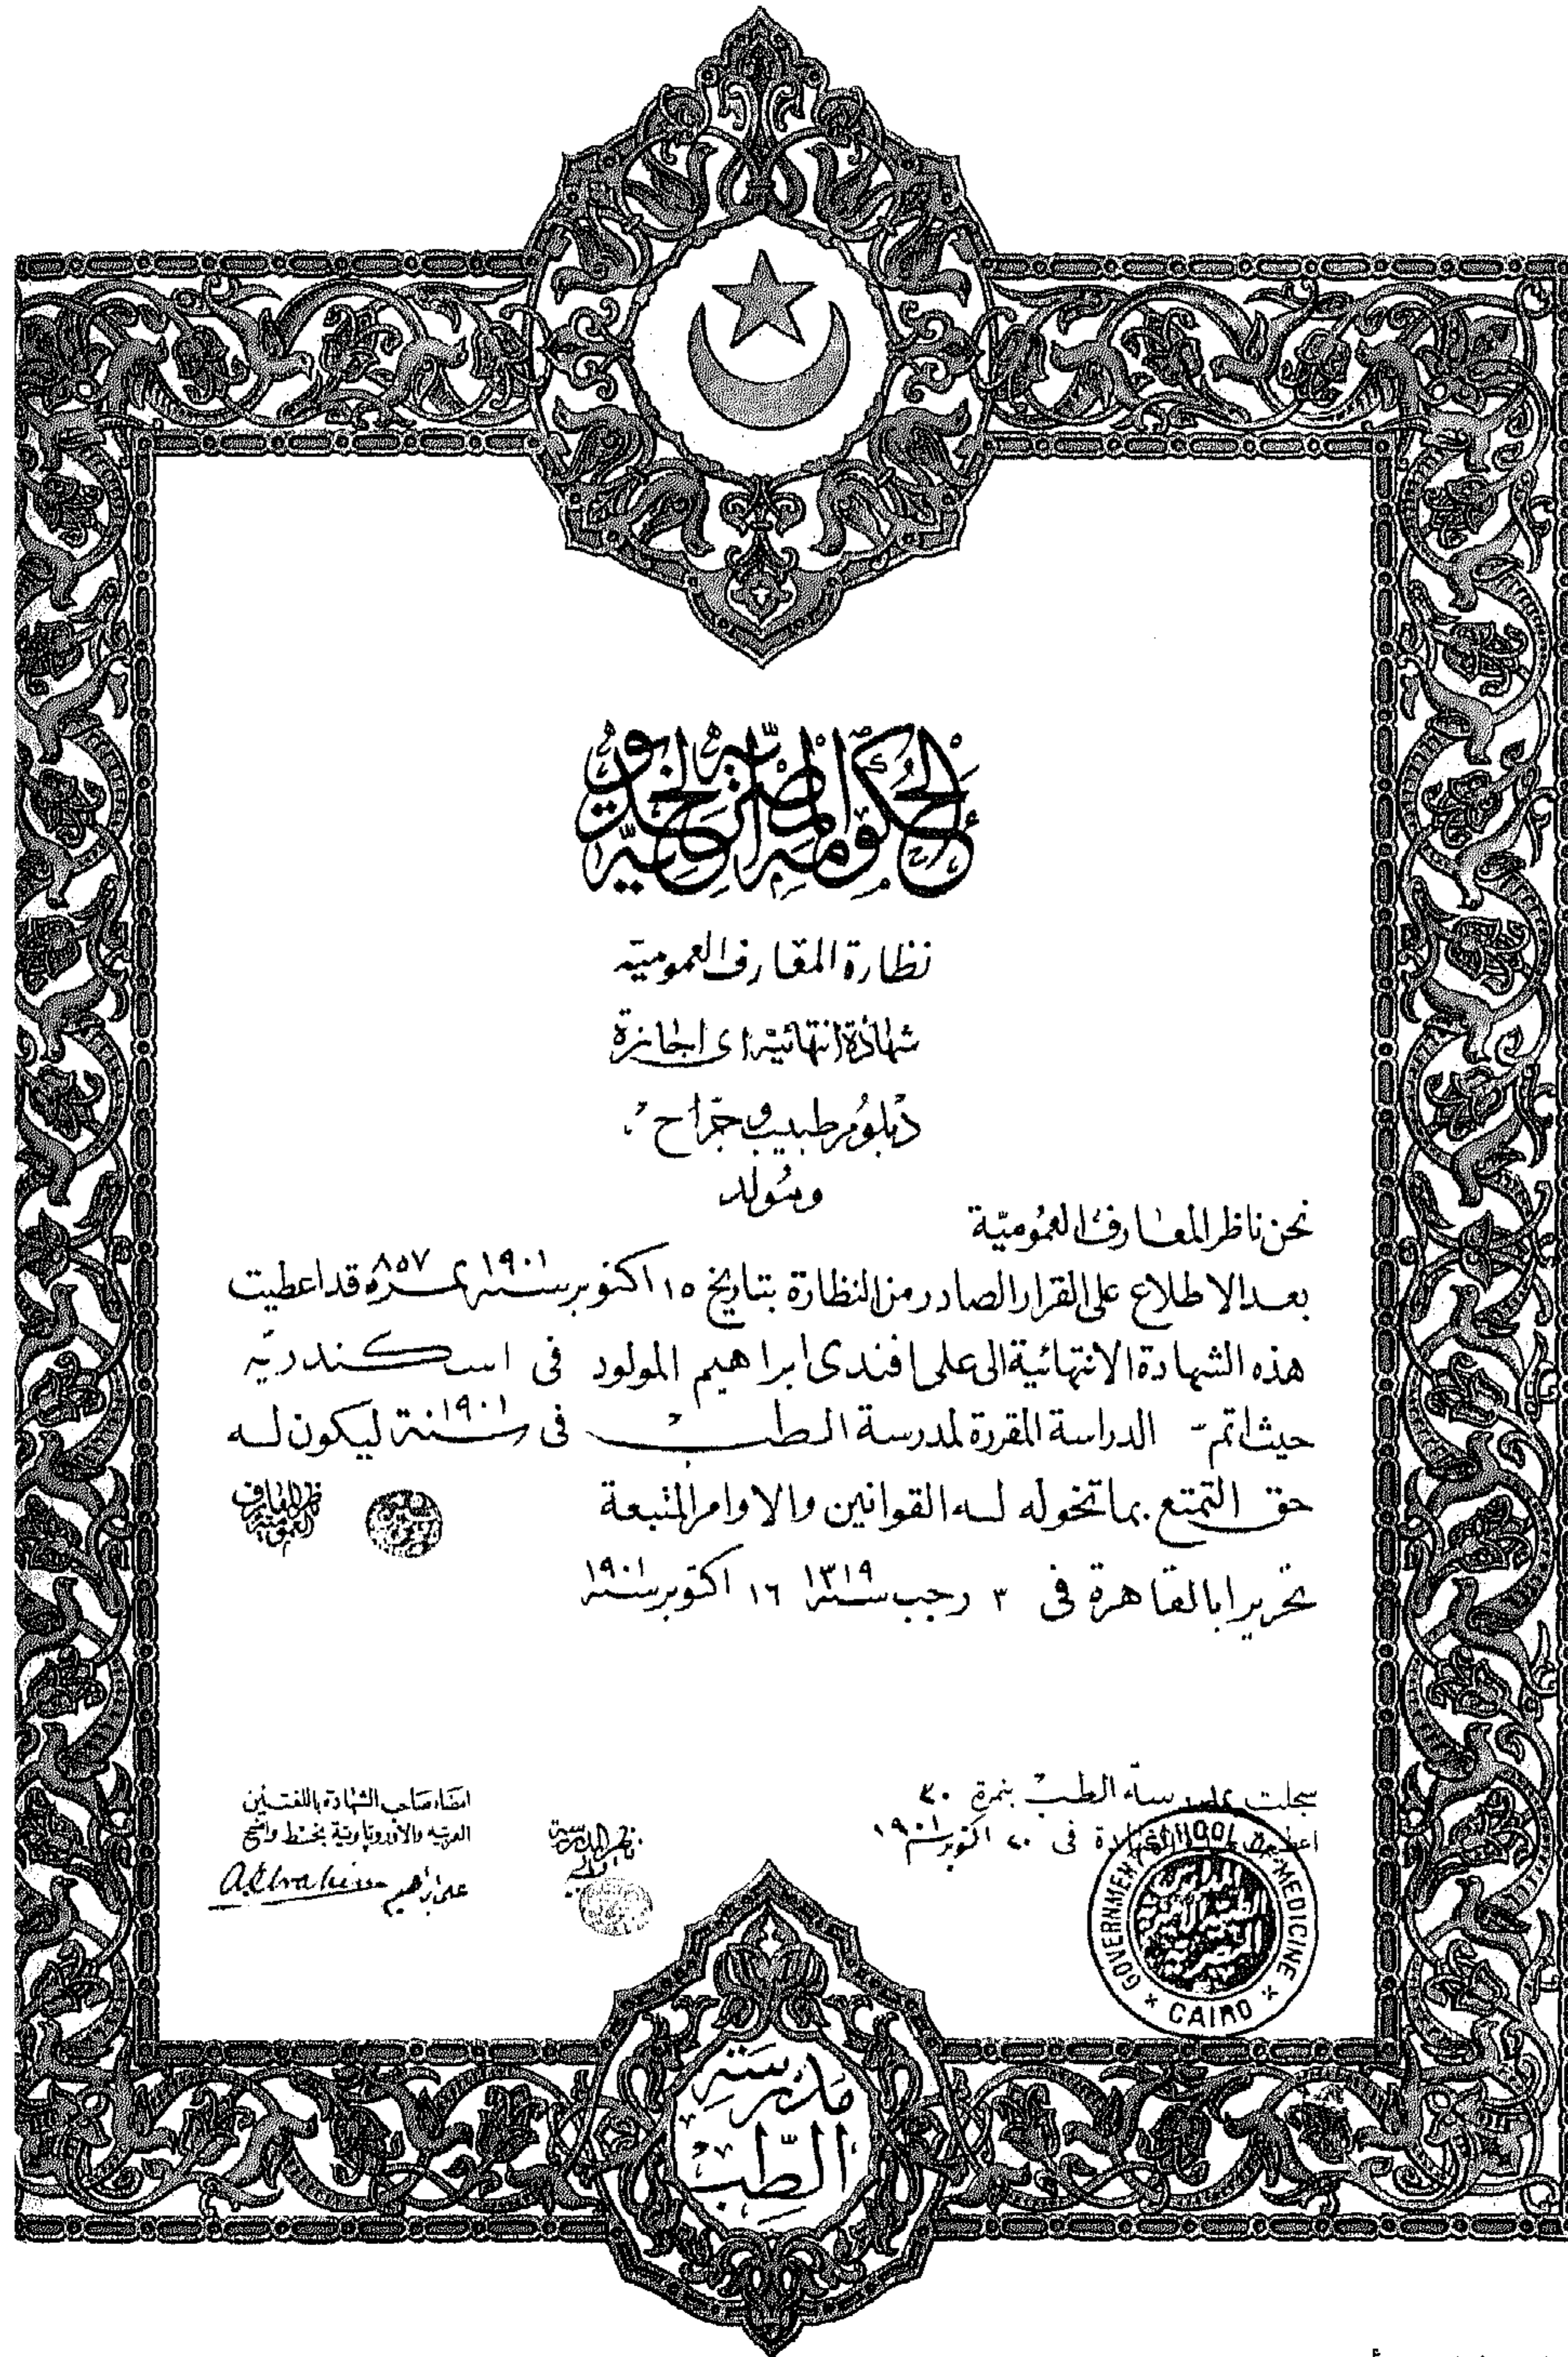 الحكومة المصرية الخديوية
نظارة المعارف العمومية
شهادة انتهائية اى اجازة
دبلوم طبيب وجراح
ومولد
نحن ناظر المعارف العمومية
بعد الاطلاع على القرار الصادر من النظارة بتاريخ ١٥ اكتوبر سنة ١٩٠١ نمرة ٨٥٧ قد اعطيت
هذه الشهادة الانتهائية الى على افندى ابراهيم المولود فى اسكندرية
حيث اتم الدراسة المقررة لمدرسة الطب فى سنة ١٩٠١ ليكون له
حق التمتع بما تخوله له القوانين والاوامر المتبعة
ناظر المعارف العمومية
تحريرا بالقاهرة فى ٣ رجب سنة ١٣١٩ ١٦ اكتوبر سنة ١٩٠١
سجلت بمدرسة الطب بنمرة ٣٠
اعطيت هذه الشهادة فى ٢٠ اكتوبر سنة ١٩٠١
GOVERNMENT SCHOOL OF MEDICINE
CAIRO
ناظر المدرسة
امضاء صاحب الشهادة باللغتين
العربية والأوروباوية بخط واضح
على ابراهيم
A Ibrahim
مدرسة
الطب